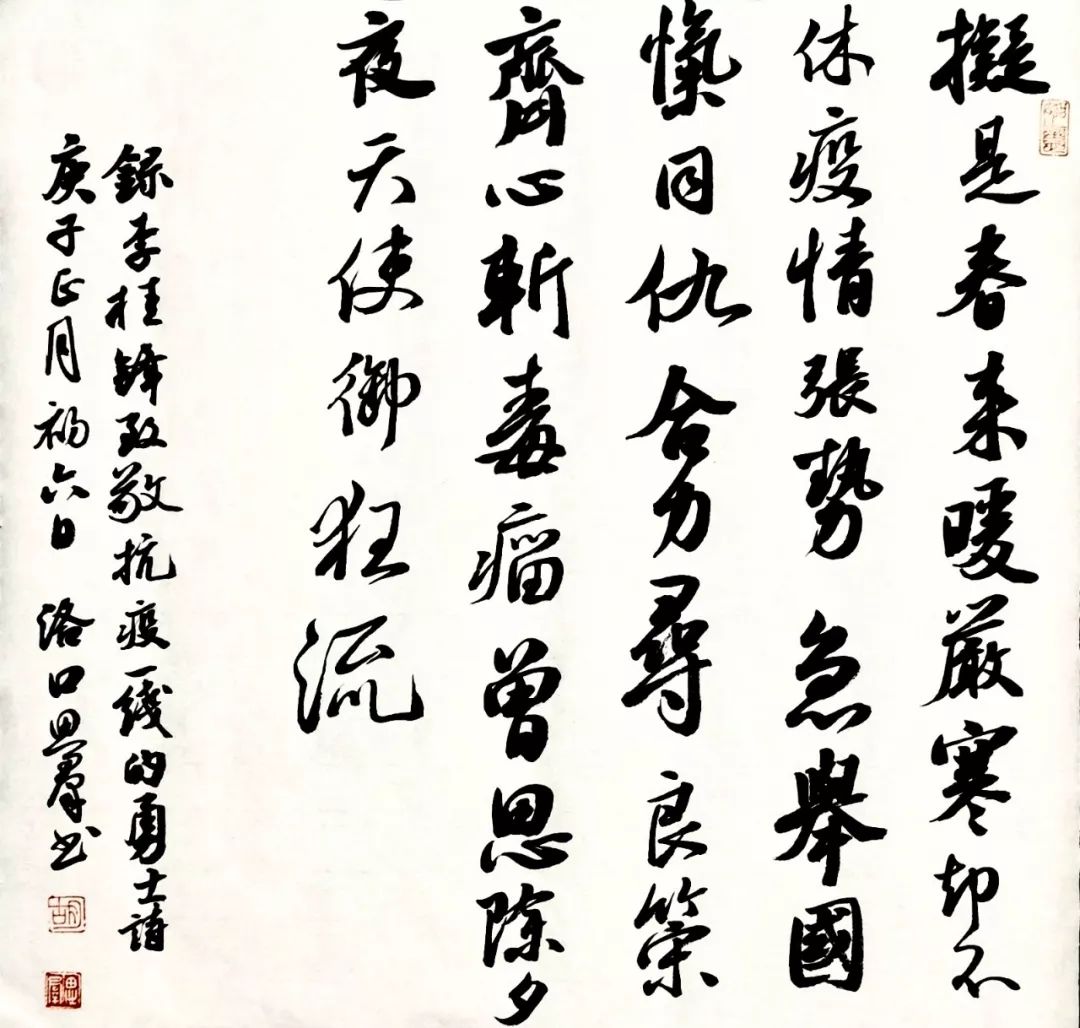 擬是春来暖嚴寒却不
休疫情張勢急舉國
愾同仇合力尋良策
齊心斬毒瘤曾思除夕
夜天使御狂流
錄李桂鋒致敬抗疫一綫的勇士詩
庚子正月初六日 洛口思羣书